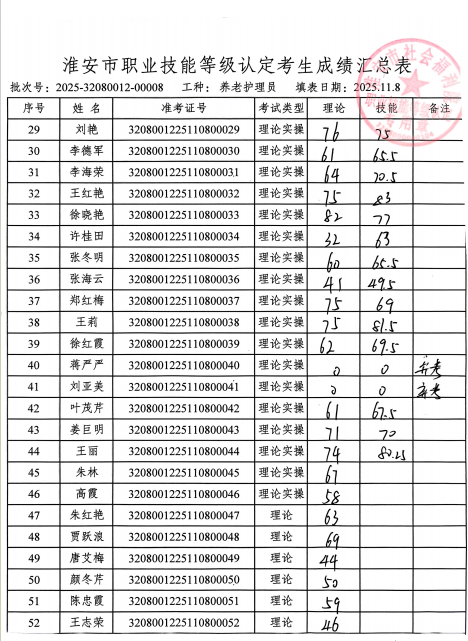 淮安市职业技能等级认定考生成绩汇总表
批次号：2025-32080012-00008 工种：养老护理员 填表日期：2025.11.8
序号 姓名 准考证号 考试类型 理论 技能 备注
29 刘艳 3208001225110800029 理论实操 76 75
30 李德军 3208001225110800030 理论实操 61 65.5
31 李海荣 3208001225110800031 理论实操 64 70.5
32 王红艳 3208001225110800032 理论实操 75 83
33 徐晓艳 3208001225110800033 理论实操 82 77
34 许桂田 3208001225110800034 理论实操 32 63
35 张冬明 3208001225110800035 理论实操 60 65.5
36 张海云 3208001225110800036 理论实操 41 49.5
37 郑红梅 3208001225110800037 理论实操 75 69
38 王莉 3208001225110800038 理论实操 75 81.5
39 徐红霞 3208001225110800039 理论实操 62 69.5
40 蒋严严 3208001225110800040 理论实操 0 0 弃考
41 刘亚美 3208001225110800041 理论实操 0 0 弃考
42 叶茂芹 3208001225110800042 理论实操 61 67.5
43 姜巨明 3208001225110800043 理论实操 71 70
44 王丽 3208001225110800044 理论实操 74 80.25
45 朱林 3208001225110800045 理论实操 67
46 高霞 3208001225110800046 理论实操 58
47 朱红艳 3208001225110800047 理论 63
48 贾跃浪 3208001225110800048 理论 69
49 唐艾梅 3208001225110800049 理论 44
50 颜冬芹 3208001225110800050 理论 50
51 陈忠霞 3208001225110800051 理论 59
52 王志荣 3208001225110800052 理论 46